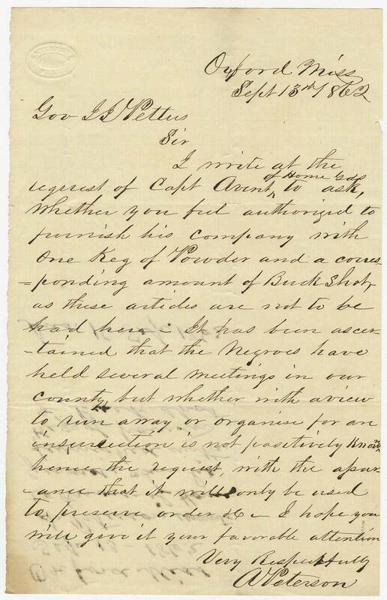 Oxford Miss
Sept 13th 1862
Gov J J Pettus
Sir
I write at the
reqest of Capt Avent, of Home Gds to ask,
whether you feel authorized to
furnish his company with
One Keg of Powder and a corres
=ponding amount of Buck Shot,
as these articles are not to be
had here - It has been ascer
=tained that the Negroes have
held several meetings in our
county, but whether with a view
to run away or organise for an
insurrection is not positively Known
hence the request with the assur
=ance that it will only be used
to preserve order &c - I hope you
will give it your favorable attention
Very Respectfully
A Peterson